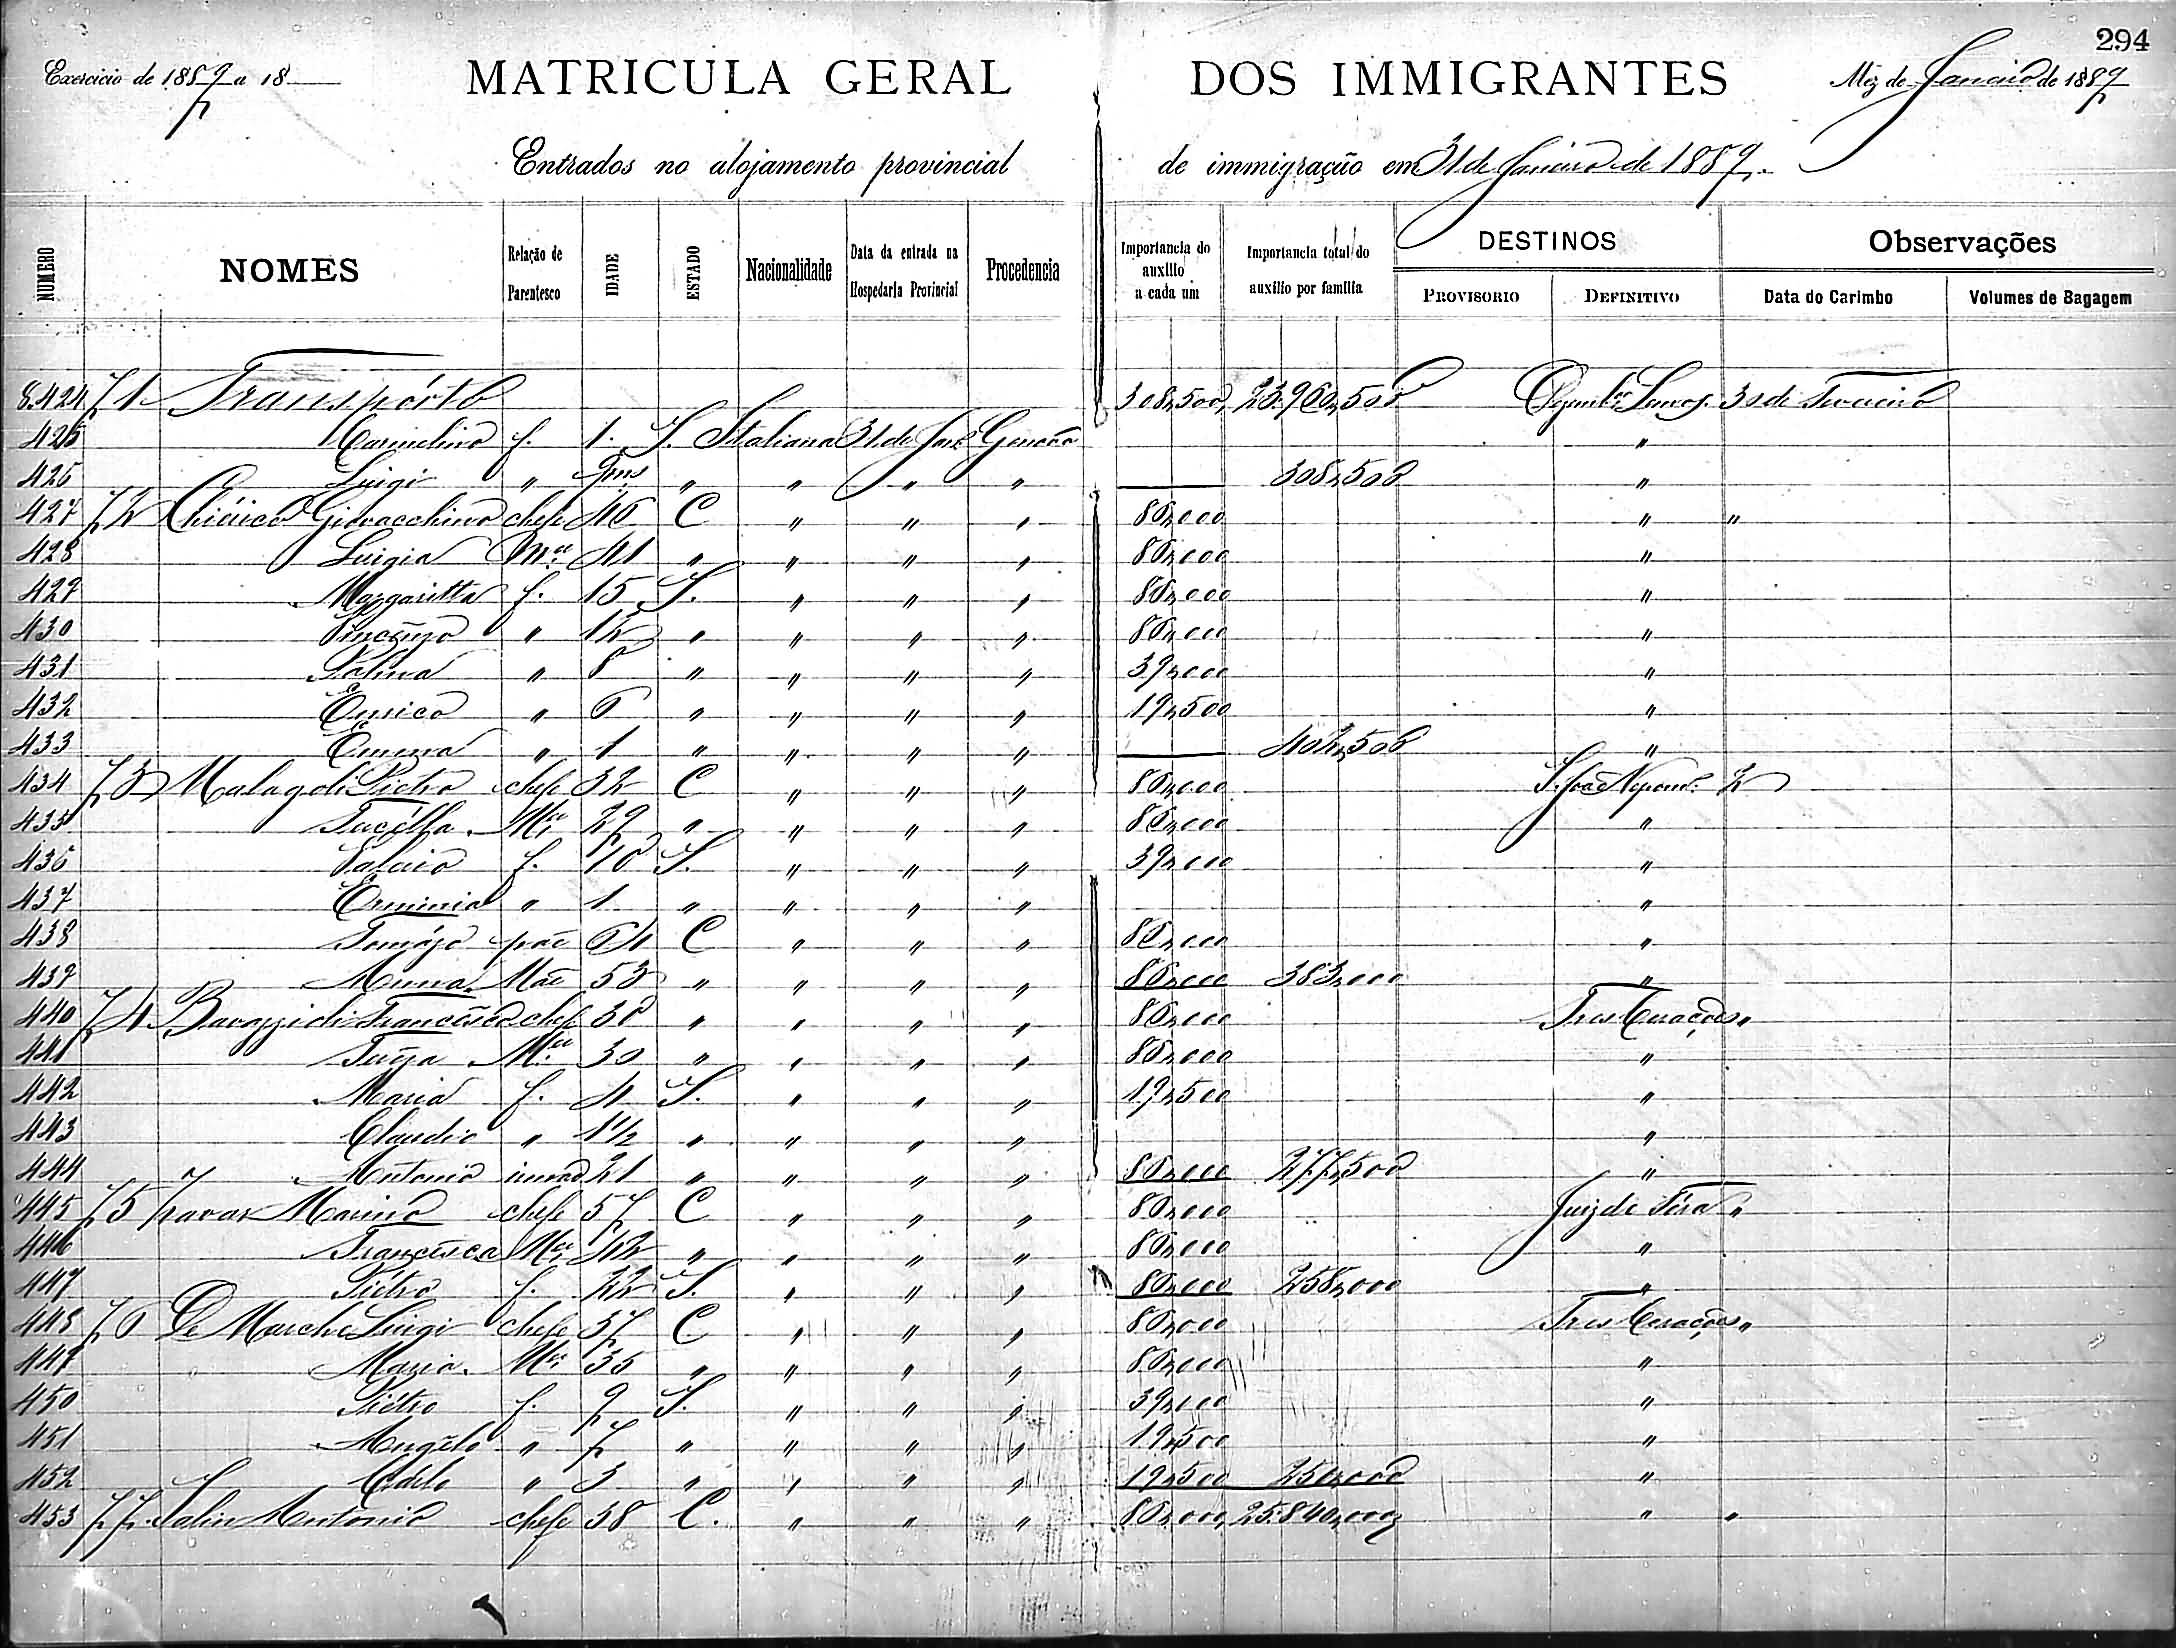 294
Exercicio de 1889 a 18
MATRICULA GERAL DOS IMMIGRANTES
Mez de Janeiro de 1889
Entrados no alojamento provincial de immigração em 31 de Janeiro de 1889.
NUMERO NOMES Relação de Parentesco IDADE ESTADO Nacionalidade Data da entrada na Hospedaria Provincial Procedencia Importancia do auxilio a cada um Importancia total do auxilio por familia DESTINOS PROVISORIO DEFINITIVO Observações Data do Carimbo Volumes de Bagagem
8.424 71 Transpórto 308,500 23.960,500 3 de Fevereiro
425 f. 1. S. Italiana 31 de Janº Genova "
426 Luigi " 9 ms " " " " 308,500 "
427 72 Giovacchino chefe 46 C " " " 80,000 " "
428 Luigia Mer 41 " " " " 80,000 "
429 Margaritta f. 15 S. " " " 80,000 "
430 Vincenzo " 12 " " " " 80,000 "
431 Palma " 8 " " " " 39,000 "
432 Enrico " 6 " " " " 19,500 "
433 Emma " 1 " " " " 402,500 "
434 73 Malagoli Pietro chefe 32 C " " " 80,000 S. João Nepom. 2
435 Mer 29 " " " " 80,000 "
436 f. 10 S. " " " 39,000 "
437 Erminia " 1 " " " " "
438 Tomázo pae 64 C " " " 80,000 "
439 Mãe 53 " " " " 80,000 383,000 "
440 74 Francesco chefe 38 " " " " 80,000 Tres Corações "
441 Mer 30 " " " " 80,000 "
442 Maria f. 4 S. " " " 19,500 "
443 Claudio " 1 1/2 " " " " "
444 Antonio irmão 21 " " " " 80,000 277,500 "
445 75 Marino chefe 57 C " " " 80,000 Juiz de Fóra "
446 Francesca Mer 42 " " " " 80,000 "
447 Piétro f. 22 S. " " " 80,000 258,000 "
448 76 De Marche Luigi chefe 37 C " " " 80,000 Tres Corações "
449 Maria Mer 35 " " " " 80,000 "
450 Piétro f. 9 S. " " " 39,000 "
451 Angélo " 7 " " " " 19,500 "
452 " 3 " " " " 19,500 250,000 "
453 77 Salin Antonio chefe 38 C. " " " 80,000 25.840,000 " "